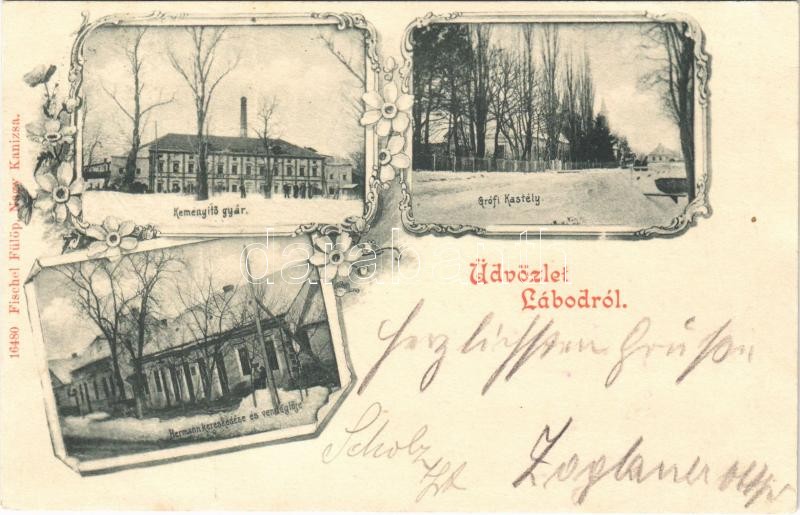 Keményítő gyár.
Grófi Kastély.
Hermann kereskedése és vendéglője
Üdvözlet
Lábodról.
Herzlichsten Grüße
Scholz
16480 Fischel Fülöp, Nagy Kanizsa.